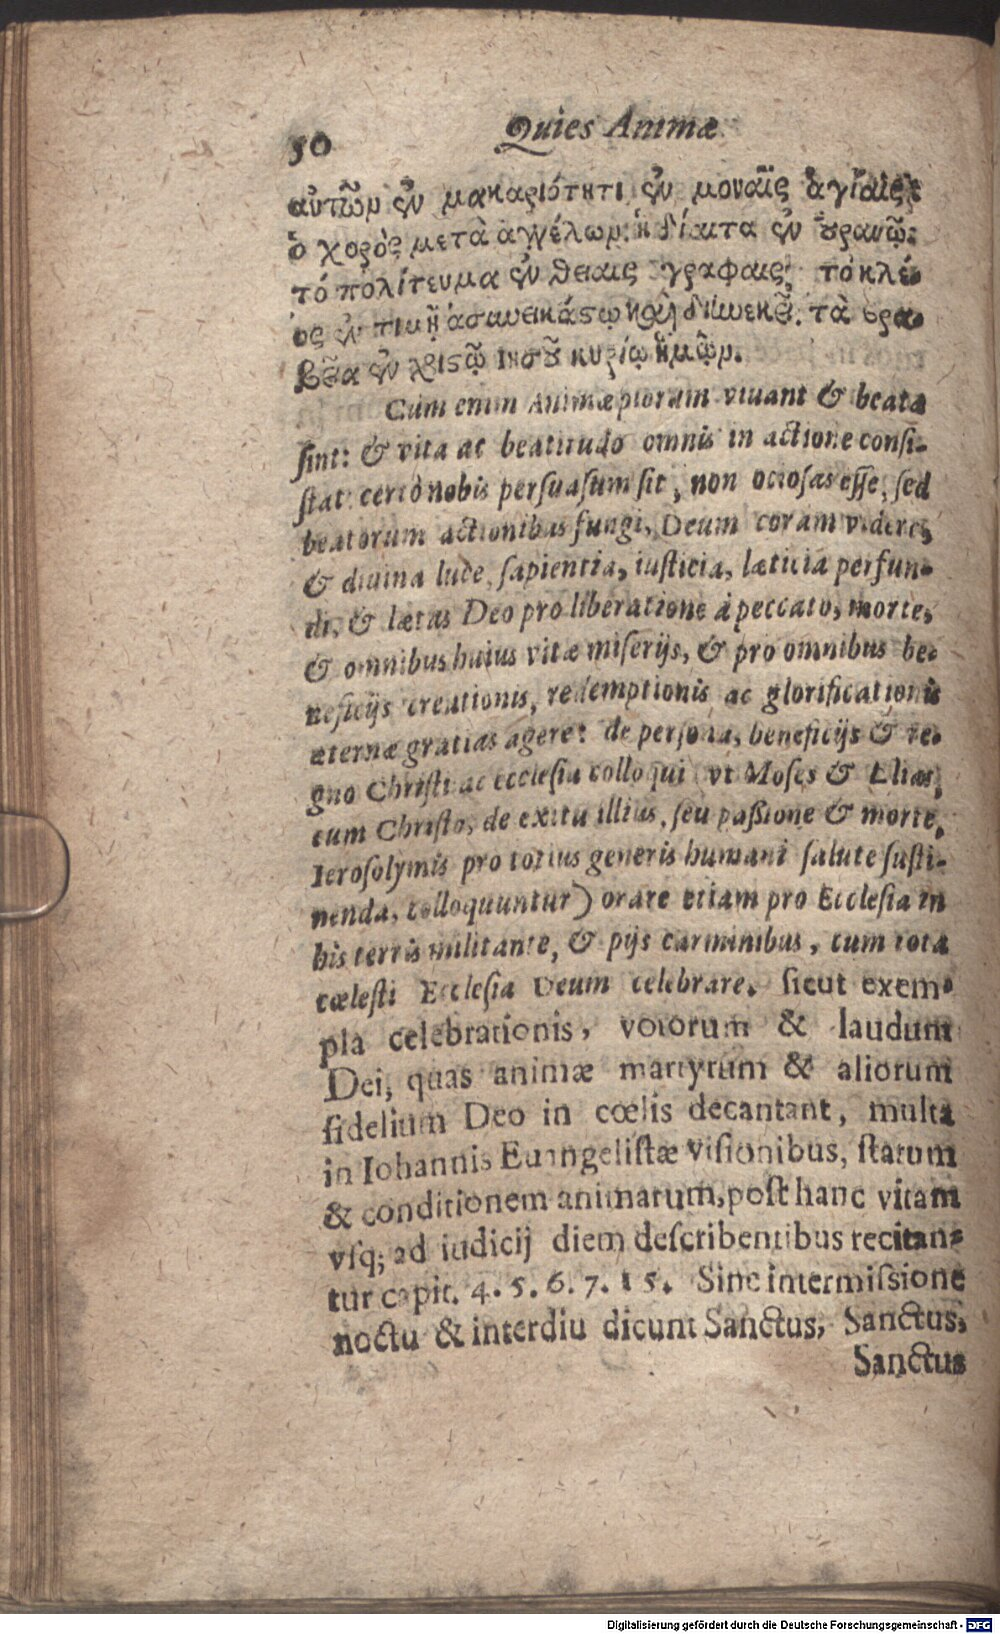 50 Quies Animæ
αὐτῶν ἐν μακαριότητι ἐν μοναῖς ἁγίαις:
ὁ χορὸς μετὰ ἀγγέλων: ἡ δίαιτα ἐν ȣ̓ρανῷ:
τὸ πολίτευμα ἐν θείαις γραφαις, τὸ κλέ-
ος ἐν τιμῇ ἀσυνεικάςῳ καὶ διωεκεῖ. τὰ βρα-
βεῖα ἐν χριςῷ ἰησȣ͂ κυρίῳ ἡμῶν.
Cùm enim Animæ piorum viuant & beatæ
ſint: & vita ac beatitudo omnis in actione conſi-
ſtat: certò nobis perſuaſum ſit, non ocioſas eſſe, ſed
beatorum actionibus fungi, Deum coram videre,
& diuina luce, ſapientia, iuſticia, læticia perfun-
di, & lætas Deo pro liberatione à peccato, morte,
& omnibus huius vitæ miſerijs, & pro omnibus be-
neficijs creationis, redemptionis ac glorificationis
æternæ gratias agere: de perſona, beneficijs & re-
gno Chriſti ac eccleſia colloqui vt Moſes & Elias,
cum Chriſto, de exitu illius, ſeu paßione & morte,
Ieroſolymis pro totius generis humani ſalute ſuſti-
nenda, colloquuntur) orare etiam pro Eccleſia in
his terris militante, & pijs carminibus, cum tota
cœleſti Eccleſia Deum celebrare. ſicut exem-
pla celebrationis, votorum & laudum
Dei, quas animæ martyrum & aliorum
fidelium Deo in cœlis decantant, multa
in Iohannis Euangeliſtæ viſionibus, ſtatum
& conditionem animarum, poſt hanc vitam
vſq; ad iudicij diem deſcribentibus recitan-
tur capit. 4. 5. 6. 7. 15. Sine intermiſsione
noctu & interdiu dicunt Sanctus, Sanctus,
Sanctus
Digitalisierung gefördert durch die Deutsche Forschungsgemeinschaft - DFG